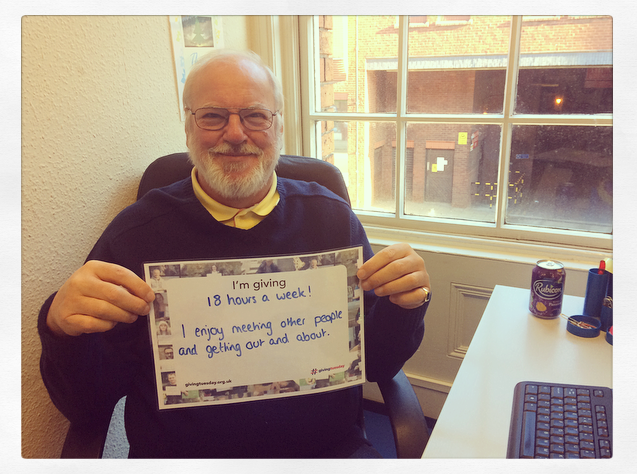 I'm giving
18 hours a week!
I enjoy meeting other people
and getting out and about.
givingtuesday.org.uk
#givingtuesday
Rubicon